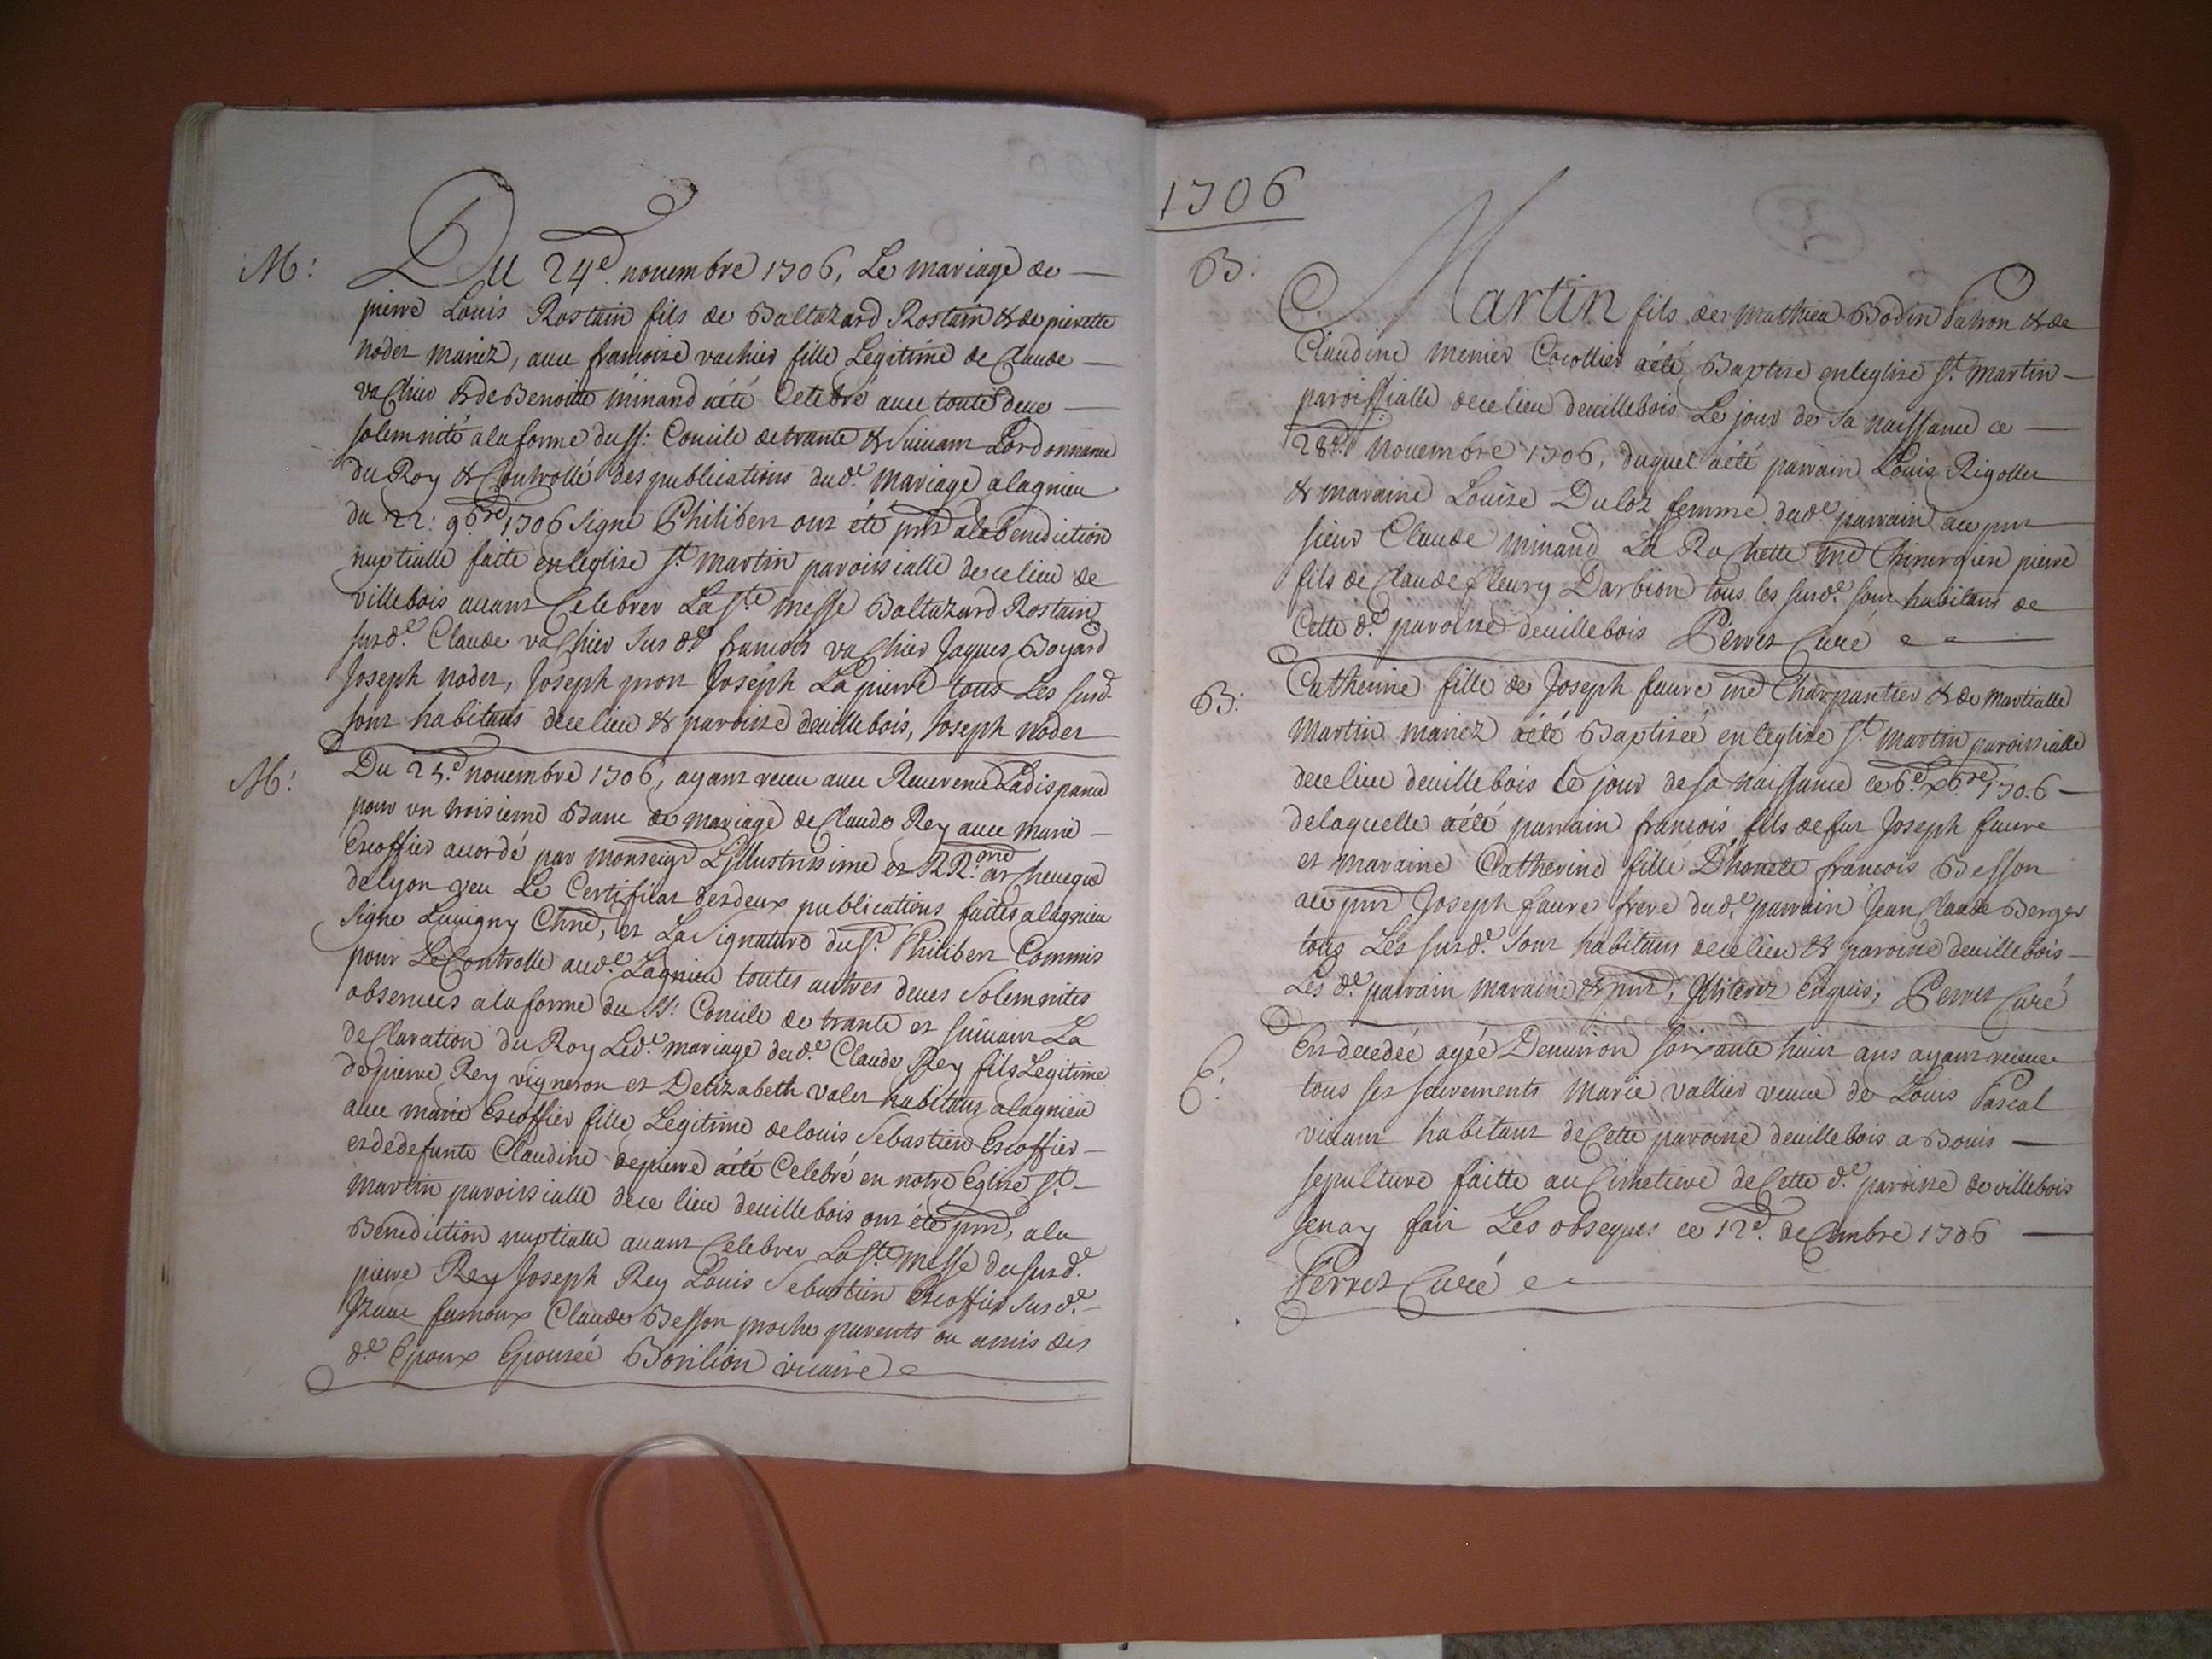 M:
Du 24e. nouembre 1706, Le mariage de
pierre Louis Rostain fils de Baltazard Rostain & de pierette
noder mariez, auec francoise vachier fille Legitime de Claude
vachier & de Benoitte minand àété Celebré auec toute deue
solemnité ala forme du ss: Concile de trante & suiuant Lordonnance
du Roy & Controllé des publications dud.e mariage alagnieu
du 22: 9bre 1706 signe Philibert ont été pnts ala benediction
nuptialle faite en leglise st. martin paroissialle de ce lieu de
villebois auant Celebrer La ste. messe Baltazard Rostain
susd.e Claude vachier susd.e francois vachier Jaques Boyard
Joseph noder, Joseph pron Joseph Lapierre tous Les susd.
sont habitans de ce lieu & paroisse deuillebois, Joseph noder
M:
Du 25.e nouembre 1706, ayant receu auec Reuerence La dispance
pour vn troisieme Banc de mariage de Claude Rey auec marie
Escoffier accordé par monseigr Lillustrissime et RR.me archeueque
delyon veu Le Certificat des deux publications faites alagnieu
signe Luuigny Chne, et La signature du sr. Philibert Commis
pour Le Controlle aud.e Lagnieu toutes autres deues solemnites
obseruees ala forme du st. Concile de trante et suiuant La
declaration du Roy Led.e mariage dud.e Claude Rey fils Legitime
de pierre Rey vigneron et Delizabeth valet habitans alagnieu
auec marie Escoffier fille Legitime delouis sebastien Escoffier
et dedefunte Claudine depierre àété Celebré en notre Eglise st.
martin paroissialle de ce lieu deuillebois ont été pnts, ala
Benediction nuptialle auant Celebrer La ste. messe du susd.e
pierre Rey Joseph Rey Louis Sebastien Escoffier susd.e
Izaac famoux Claude Besson proche parents ou amis des
d.e Epoux Epousée Borilion vicaire
1706
B.
Martin fils de mathieu Bodin Patron & de
Claudine menier Cocollier àété Baptise en leglise st. martin
paroissialle de ce lieu deuillebois Le jour de sa naissance ce
28e. nouembre 1706, duquel àété parrain Louis Rigollet
& maraine Louise Duloz femme dud.e parrain ace pnt
sieur Claude minand La Rochette me Chirurgien pierre
fils de Claude fleury Darbion tous les susd.e sont habitans de
Cette d.e paroisse deuillebois Perret Curé
B.
Catherine fille de Joseph faure me Charpantier & de martialle
martin mariez àété Baptisée en leglise st. martin paroissialle
de ce lieu deuillebois le jour de sa naissance ce 6e. xbre 1706
delaquelle àété parrain francois fils defut Joseph faure
et maraine Catherine fille Dhonete francois Besson
ace pnt Joseph faure frere dud.e parrain Jean Claude Berger
tous Les susd.e sont habitans de ce lieu & paroisse deuillebois
Les d.e parrain maraine & pnts, Jlliterez Enquis, Perret Curé
E.
Est decedée agée Denuiron soixante huit ans ayant receue
tous ses sacrements Marie vallier veuue de Louis Pascal
viuant habitant de Cette paroisse deuillebois a Bouis
sepulture faitte au Cimetiere de Cette d.e paroisse de villebois
Jenay fait Les obseques ce 12e. decembre 1706
Perret Curé